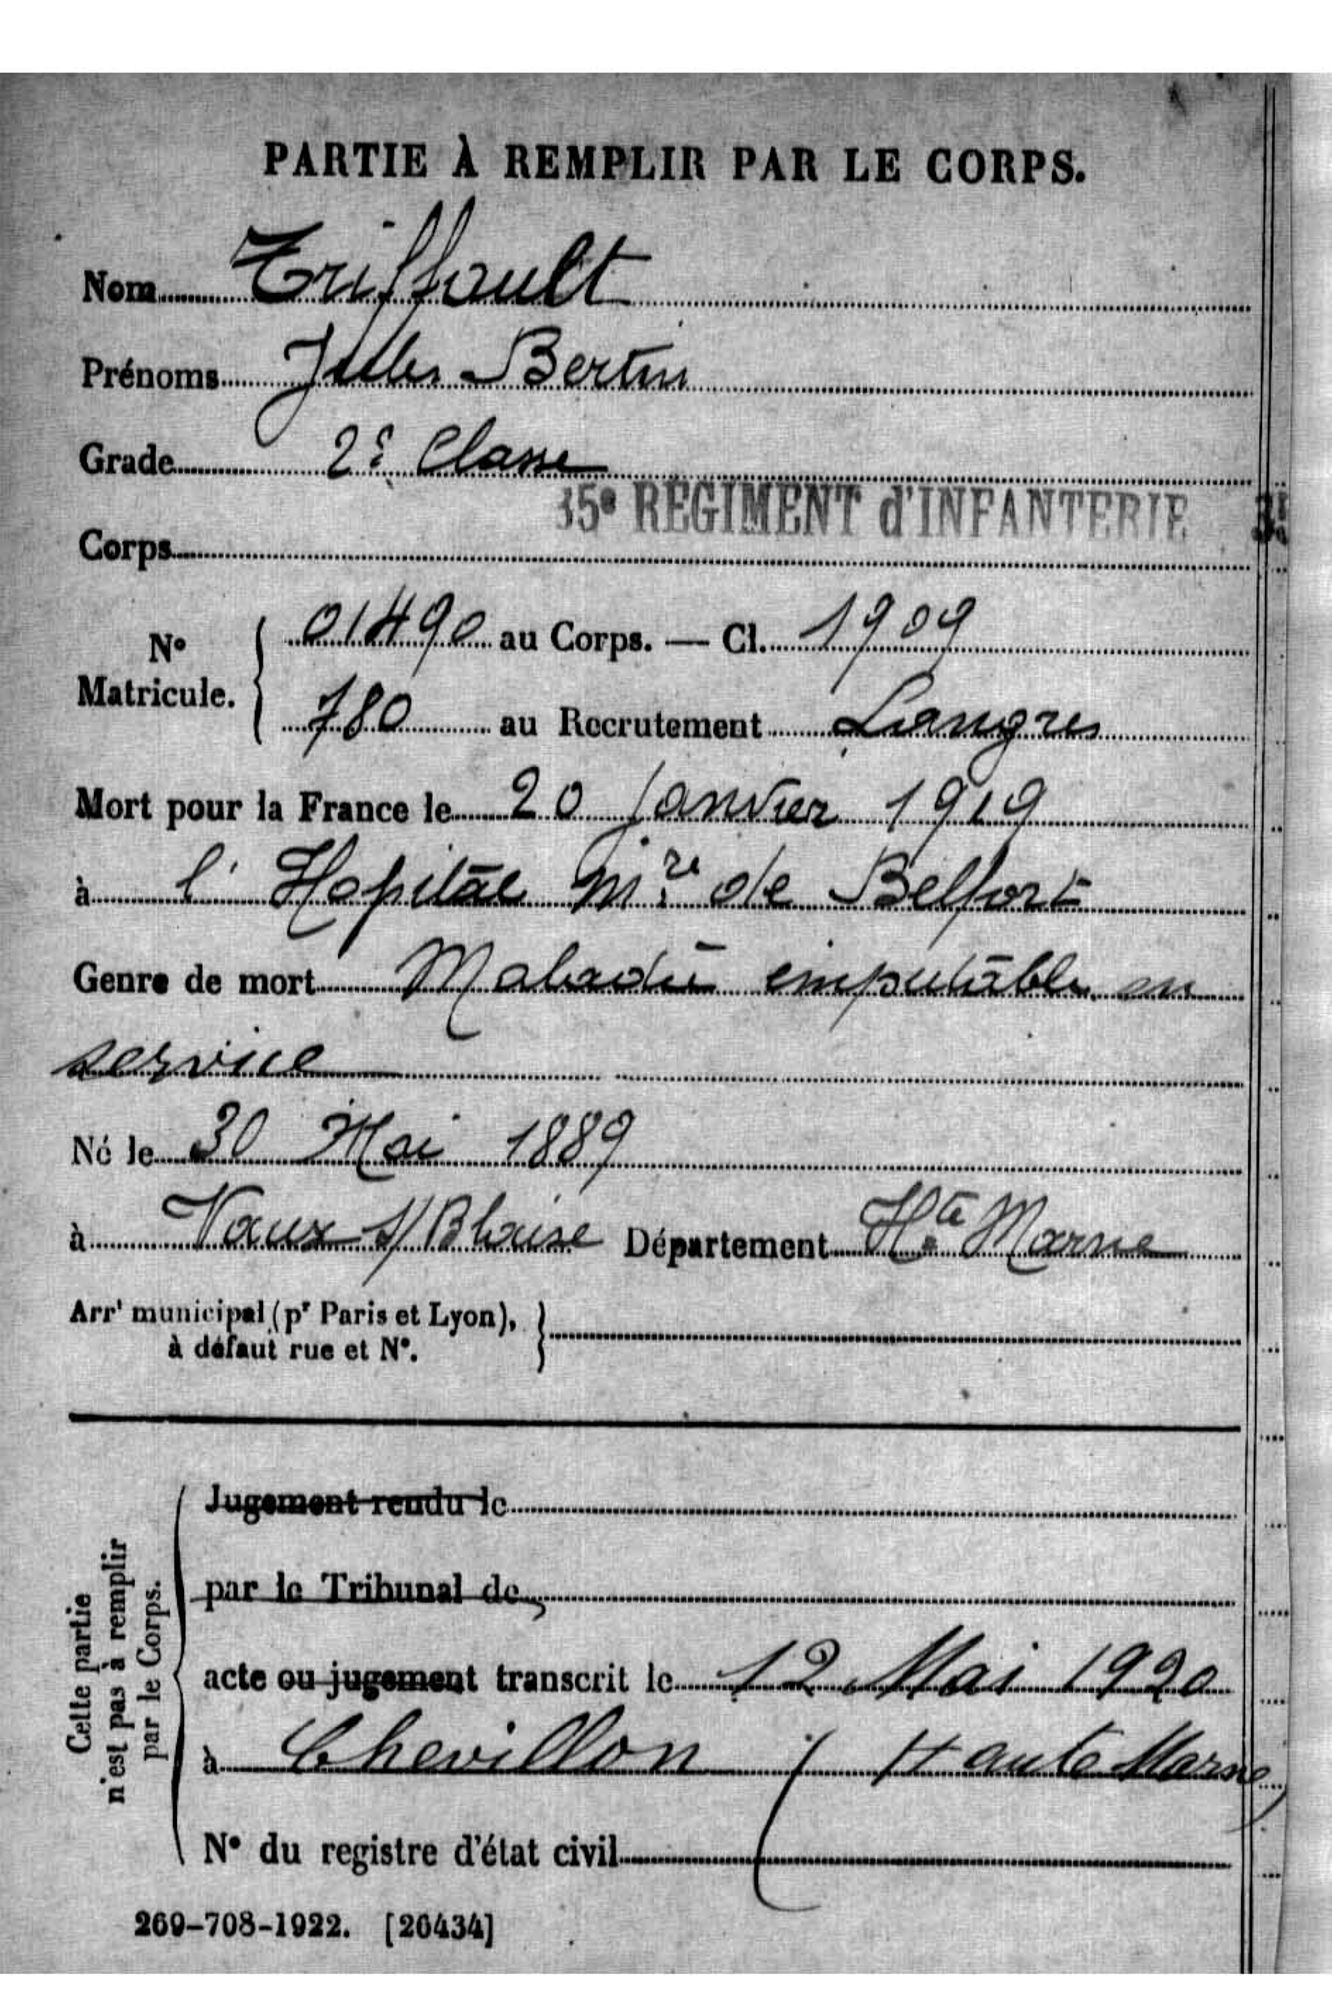 PARTIE À REMPLIR PAR LE CORPS.
Nom Triffault
Prénoms Jules Bertin
Grade 2e Classe
35e REGIMENT d'INFANTERIE
Corps
N° Matricule. { 01490 au Corps. — Cl. 1909
780 au Recrutement Langres
Mort pour la France le 20 janvier 1919
à l'Hopital Mre de Belfort
Genre de mort Maladie imputable au
service
Né le 30 Mai 1889
à Vaux s/Blaise Département Hte Marne
Arrt municipal (pr Paris et Lyon),
à défaut rue et N°.
Cette partie
n'est pas à remplir
par le Corps.
Jugement rendu le
par le Tribunal de
acte ou jugement transcrit le 12 Mai 1920
à Chevillon (Haute Marne)
N° du registre d'état civil
269-708-1922. [26434]